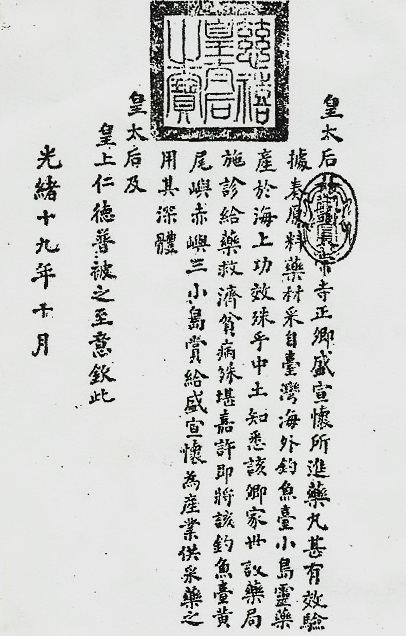 慈禧
皇太后
之寶
皇太后
常寺正卿盛宣懷所進藥丸甚有效驗
據奏原料藥材采自臺灣海外釣魚臺小島靈藥
產於海上功效殊乎中土知悉該卿家世設藥局
施診給藥救濟貧病殊堪嘉許即將該釣魚臺黃
尾嶼赤嶼三小島賞給盛宣懷為產業供采藥之
用其深體
皇太后及
皇上仁德普被之至意欽此
光緒十九年十月